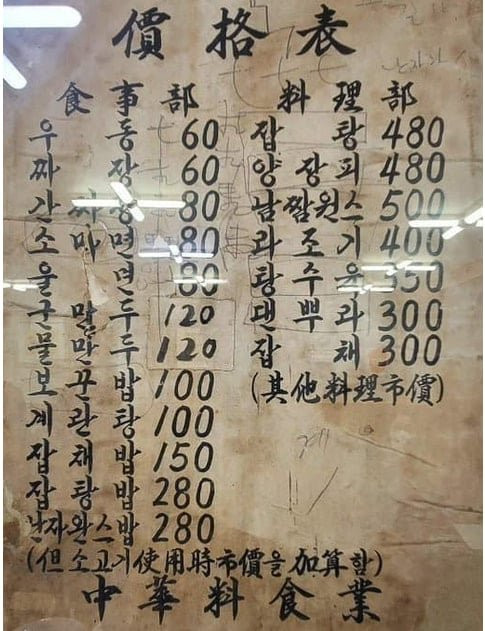 價格表
食事部
우 동 60
짜 장 60
간 짜 장 80
소 마 면 80
울 면 80
군 만 두 120
물 만 두 120
보 끈 밥 100
계 란 탕 100
잡 채 밥 150
잡 탕 밥 280
난자완스밥 280
(但 소고기使用時市價을加算함)
料理部
잡 탕 480
양 장 피 480
500
라 조 기 400
탕 수 육 350
덴 뿌 라 300
잡 채 300
(其他料理市價)
中華料食業